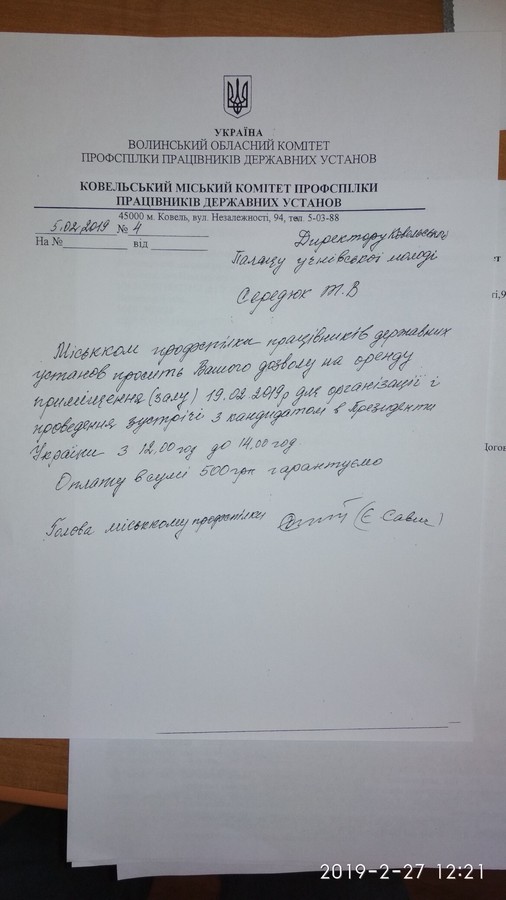 УКРАЇНА
ВОЛИНСЬКИЙ ОБЛАСНИЙ КОМІТЕТ
ПРОФСПІЛКИ ПРАЦІВНИКІВ ДЕРЖАВНИХ УСТАНОВ
КОВЕЛЬСЬКИЙ МІСЬКИЙ КОМІТЕТ ПРОФСПІЛКИ
ПРАЦІВНИКІВ ДЕРЖАВНИХ УСТАНОВ
45000 м. Ковель, вул. Незалежності, 94, тел. 5-03-88
5.02.2019 № 4
На №__________ від __________
Директору Ковельського
Палацу учнівської молоді
Середюк Т.В
Міськком профспілки працівників державних
установ просить Вашого дозволу на оренду
приміщення (залу) 19.02.2019р для організації і
проведення зустрічі з кандидатом в Президенти
України з 12.00 год до 14.00 год.
Оплату в сумі 500 грн гарантуємо
Голова міськкому профспілки
2019-2-27 12:21